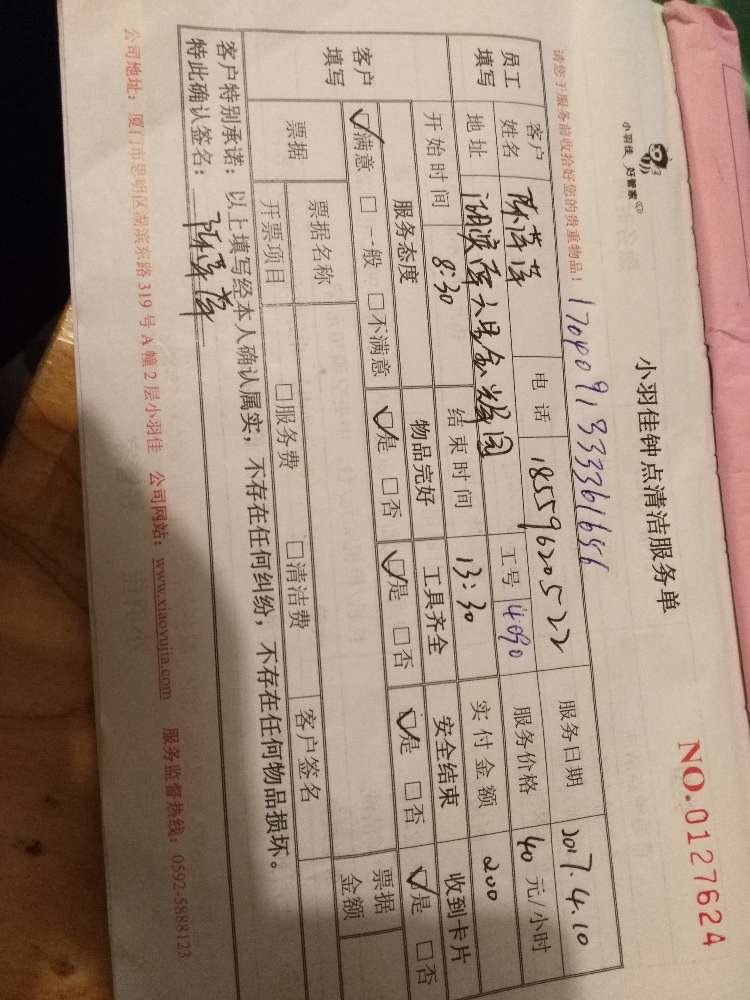 小羽佳 好管家
小羽佳钟点清洁服务单
NO.0127624
请您于服务前收拾好您的贵重物品！
员工填写 客户姓名 电话 18559620522 服务日期 2017.4.10
地址 工号 4090 服务价格 40 元/小时
开始时间 8:30 结束时间 13:30 实付金额 200
客户填写 服务态度 物品完好 工具齐全 安全结束 收到卡片
☑满意 □一般 □不满意 ☑是 □否 ☑是 □否 ☑是 □否 ☑是 □否
票据 票据名称 票据金额
开票项目 □服务费 □清洁费 客户签名
客户特别承诺：以上填写经本人确认属实，不存在任何纠纷，不存在任何物品损坏。
特此确认签名：
公司地址：厦门市思明区湖滨东路319号A幢2层小羽佳 公司网站：www.xiaoyujia.com 服务监督热线：0592-5888123